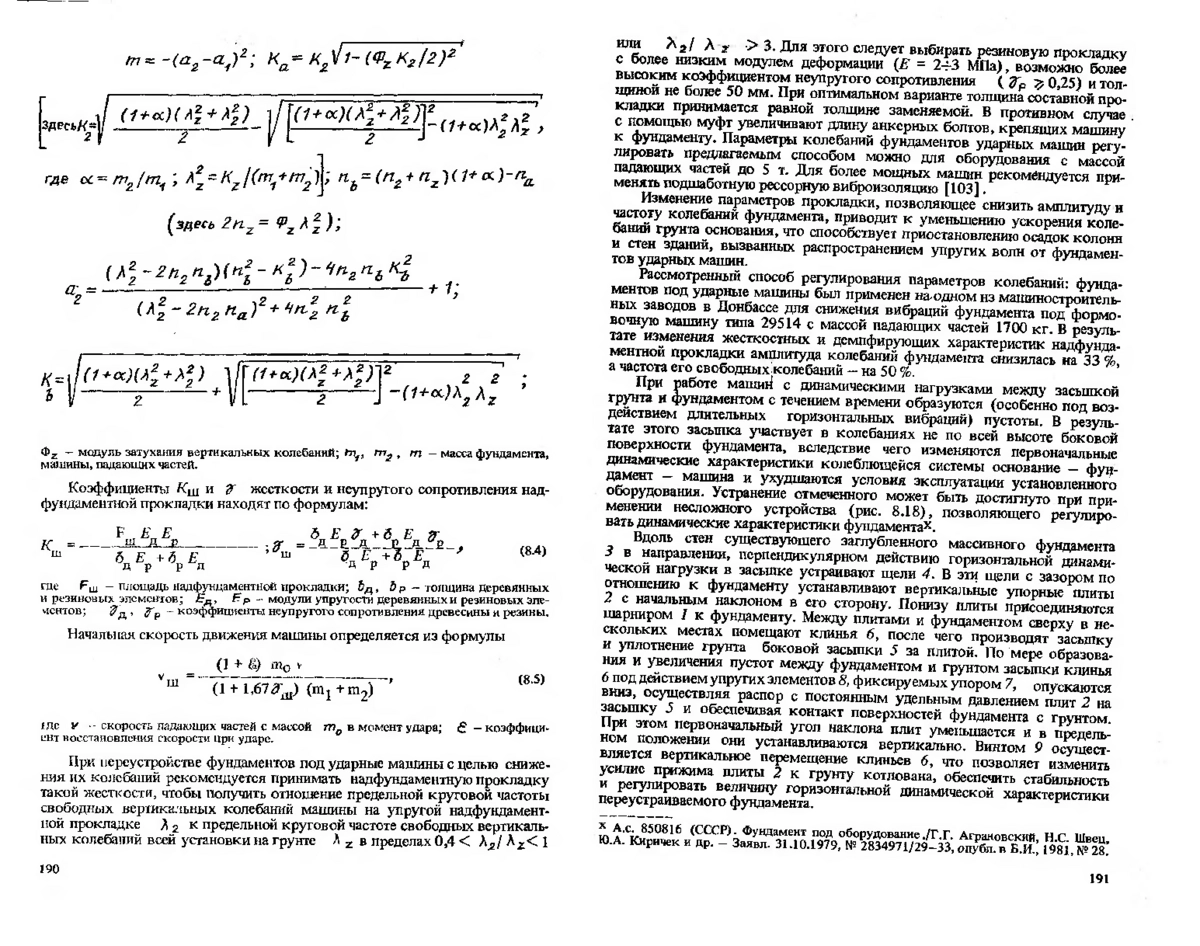 m = -(a₂-a₁)²; Kₐ = K₂√1-(Φ_z K₂/2)²
[здесь K₂ = √(1+α)(λ₂²+λ_z²)/2 - √[(1+α)(λ₂²+λ_z²)/2]²-(1+α)λ₂²λ_z² ,
где α = m₂/m₁ ; λ_z² = K_z/(m₁+m₂)]; n_b = (n₂+n_z)(1+α)-nₐ
(здесь 2n_z = Φ_z λ_z²);
a₂ = (λ₂²-2n₂n_b)(n_b²-K_b²)-4n₂n_b K_b² / (λ₂²-2n₂nₐ)²+4n₂² n_b² + 1;
K_b = √(1+α)(λ₂²+λ_z²)/2 + √[(1+α)(λ_z²+λ₂²)/2]²-(1+α)λ₂²λ_z² ;
Φ_z – модуль затухания вертикальных колебаний; m₁, m₂ , m – масса фундамента,
машины, падающих частей.
Коэффициенты K_ш и γ жесткости и неупругого сопротивления над-
фундаментной прокладки находят по формулам:
K_ш = F_ш E_д E_р / δ_д E_р + δ_р E_д ; γ_ш = δ_д E_р γ_д + δ_р E_д γ_р / δ_д E_р + δ_р E_д , (8.4)
где F_ш – площадь надфундаментной прокладки; δ_д, δ_р – толщина деревянных
и резиновых элементов; E_д, E_р – модули упругости деревянных и резиновых эле-
ментов; γ_д , γ_р – коэффициенты неупругого сопротивления древесины и резины.
Начальная скорость движения машины определяется из формулы
v_ш = (1 + ε) m₀ v / (1 + 1,67γ_ш) (m₁ + m₂) , (8.5)
где v – скорость падающих частей с массой m₀ в момент удара; ε – коэффици-
ент восстановления скорости при ударе.
При переустройстве фундаментов под ударные машины с целью сниже-
ния их колебаний рекомендуется принимать надфундаментную прокладку
такой жесткости, чтобы получить отношение предельной круговой частоты
свободных вертикальных колебаний машины на упругой надфундамент-
ной прокладке λ₂ к предельной круговой частоте свободных вертикаль-
ных колебаний всей установки на грунте λ_z в пределах 0,4 < λ₂/ λ_z < 1
190
или λ₂/ λ_z > 3. Для этого следует выбирать резиновую прокладку
с более низким модулем деформации (E = 2÷3 МПа), возможно более
высоким коэффициентом неупругого сопротивления ( γ_р ⩾ 0,25) и тол-
щиной не более 50 мм. При оптимальном варианте толщина составной про-
кладки принимается равной толщине заменяемой. В противном случае
с помощью муфт увеличивают длину анкерных болтов, крепящих машину
к фундаменту. Параметры колебаний фундаментов ударных машин регу-
лировать предлагаемым способом можно для оборудования с массой
падающих частей до 5 т. Для более мощных машин рекомендуется при-
менять подшаботную рессорную виброизоляцию [103] .
Изменение параметров прокладки, позволяющее снизить амплитуду и
частоту колебаний фундамента, приводит к уменьшению ускорения коле-
баний грунта основания, что способствует приостановлению осадок колонн
и стен зданий, вызванных распространением упругих волн от фундамен-
тов ударных машин.
Рассмотренный способ регулирования параметров колебаний: фунда-
ментов под ударные машины был применен на одном из машиностроитель-
ных заводов в Донбассе для снижения вибраций фундамента под формо-
вочную машину типа 29514 с массой падающих частей 1700 кг. В резуль-
тате изменения жесткостных и демпфирующих характеристик надфунда-
ментной прокладки амплитуда колебаний фундамента снизилась на 33 %,
а частота его свободных колебаний – на 50 %.
При работе машин с динамическими нагрузками между засыпкой
грунта и фундаментом с течением времени образуются (особенно под воз-
действием длительных горизонтальных вибраций) пустоты. В резуль-
тате этого засыпка участвует в колебаниях не по всей высоте боковой
поверхности фундамента, вследствие чего изменяются первоначальные
динамические характеристики колеблющейся системы основание – фун-
дамент – машина и ухудшаются условия эксплуатации установленного
оборудования. Устранение отмеченного может быть достигнуто при при-
менении несложного устройства (рис. 8.18), позволяющего регулиро-
вать динамические характеристики фундаментаˣ.
Вдоль стен существующего заглубленного массивного фундамента
3 в направлении, перпендикулярном действию горизонтальной динами-
ческой нагрузки в засыпке устраивают щели 4. В эти щели с зазором по
отношению к фундаменту устанавливают вертикальные упорные плиты
2 с начальным наклоном в его сторону. Понизу плиты присоединяются
шарниром 1 к фундаменту. Между плитами и фундаментом сверху в не-
скольких местах помещают клинья 6, после чего производят засыпку
и уплотнение грунта боковой засыпки 5 за плитой. По мере образова-
ния и увеличения пустот между фундаментом и грунтом засыпки клинья
6 под действием упругих элементов 8, фиксируемых упором 7, опускаются
вниз, осуществляя распор с постоянным удельным давлением плит 2 на
засыпку 5 и обеспечивая контакт поверхностей фундамента с грунтом.
При этом первоначальный угол наклона плит уменьшается и в предель-
ном положении они устанавливаются вертикально. Винтом 9 осущест-
вляется вертикальное перемещение клиньев 6, что позволяет изменить
усилие прижима плиты 2 к грунту котлована, обеспечить стабильность
и регулировать величину горизонтальной динамической характеристики
переустраиваемого фундамента.
х А.с. 850816 (СССР). Фундамент под оборудование./Г.Г. Аграновский, Н.С. Швец,
Ю.А. Киричек и др. – Заявл. 31.10.1979, № 2834971/29–33, опубл. в Б.И., 1981, № 28.
191